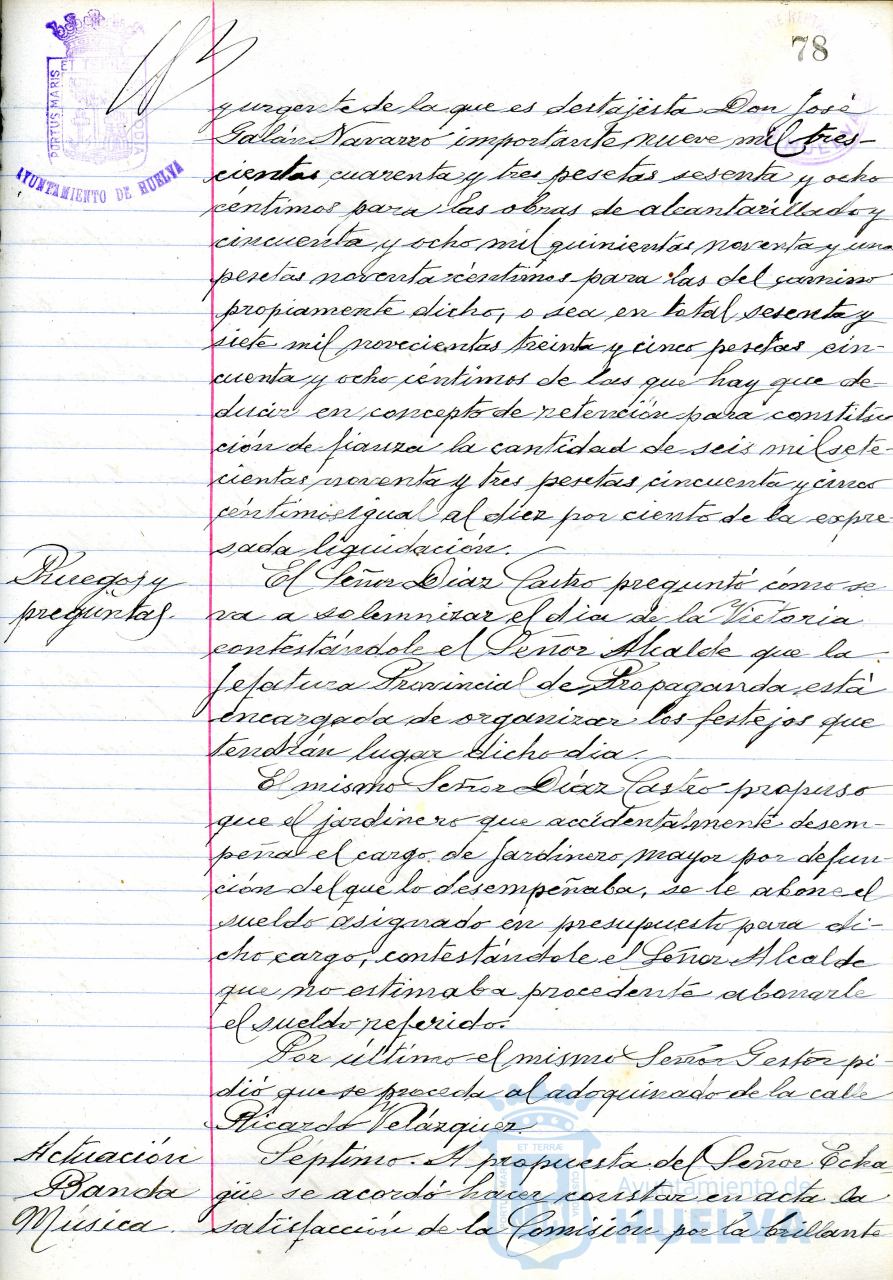 78
PORTUS MARIS
ET TERRÆ
CUSTODIA
AYUNTAMIENTO DE HUELVA
y urgente de la que es destajista Don José
Galán Navarro importante nueve mil tres-
cientas cuarenta y tres pesetas sesenta y ocho
céntimos para las obras de alcantarillado y
cincuenta y ocho mil quinientas noventa y una
pesetas noventa céntimos para las del camino
propiamente dicho, o sea en total sesenta y
siete mil novecientas treinta y cinco pesetas cin-
cuenta y ocho céntimos de las que hay que de-
ducir en concepto de retención para constitu
ción de fianza la cantidad de seis mil sete-
cientas noventa y tres pesetas cincuenta y cinco
céntimos igual al diez por ciento de la expre
sada liquidación.
Ruegos y
preguntas.
El Señor Díaz Castro preguntó cómo se
va a solemnizar el dia de la Victoria
contestándole el Señor Alcalde que la
Jefatura Provincial de Propaganda está
encargada de organizar los festejos que
tendrán lugar dicho dia.
El mismo Señor Díaz Castro propuso
que el jardinero que accidentalmente desem-
peña el cargo de Jardinero mayor por defun-
ción del que lo desempeñaba, se le abone el
sueldo asignado en presupuesto para di-
cho cargo, contestándole el Señor Alcalde
que no estimaba procedente abonarle
el sueldo referido.
Por último el mismo Señor Gestor pi-
dió que se proceda al adoquinado de la calle
Ricardo Velázquez.
Actuación
Banda
Música.
Séptimo. A propuesta del Señor Echa
güe se acordó hacer constar en acta la
satisfacción de la Comisión por la brillante
ET TERRÆ
PORTUS MARIS
CUSTODIA
Ayuntamiento de
HUELVA